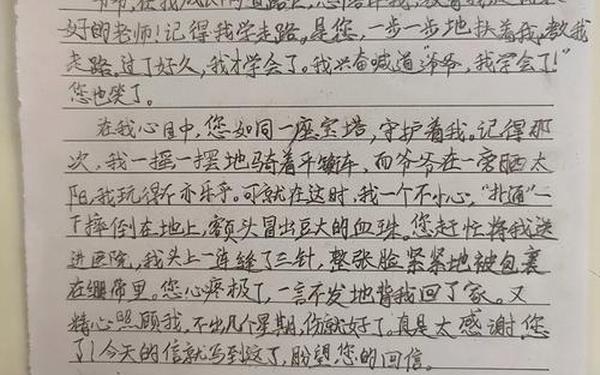 爷爷,在我成长的道路上,您陪伴我,教育我,是我最
好的老师!记得我学走路,是您,一步一步地扶着我,教我
走路。过了好久,我才学会了。我兴奋喊道“爷爷,我学会了!”
您也笑了。
在我心目中,您如同一座宝塔,守护着我。记得那
次,我一摇一摆地骑着平衡车,而爷爷在一旁晒太
阳,我玩得不亦乐乎。可就在这时,我一个不小心,“扑通”一
下摔倒在地上,额头冒出豆大的血珠。您赶忙将我送
进医院,我头上一连缝了三针,整张脸紧紧地被包裹
在绷带里。您心疼极了,一言不发地背我回了家。又
精心照顾我,不出几个星期,伤就好了。真是太感谢您
了!今天的信就写到这了,盼望您的回信。